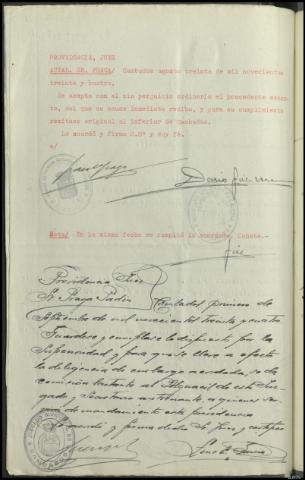 PROVIDENCIA, JUEZ
ACTAL. SR. FRAGA/ Cambados agosto treinta de mil novecientos
treinta y cuatro.
Se acepta con el sin perjuicio ordinario el precedente
del que se acuse inmediato recibo, y para su cumplimiento
remítase original al inferior de Cambados.
Lo acordó y firma S.Sª y doy fé.
Nota/ En la misma fecha se cumplió lo acordado. Conste.-
Providencia Juez
Sr. Fraga Padín
Cambados primero de
Septiembre de mil novecientos treinta y cuatro
Guardese y cumplase lo dispuesto por la
Superioridad y para que se lleve a efecto
la diligencia de embargo acordada, se da
comisión bastante al Alguacil de este Juz-
gado, y Secretario
de mandamiento esta providencia
Lo mandó y firma dicho Sr. Juez, certifico